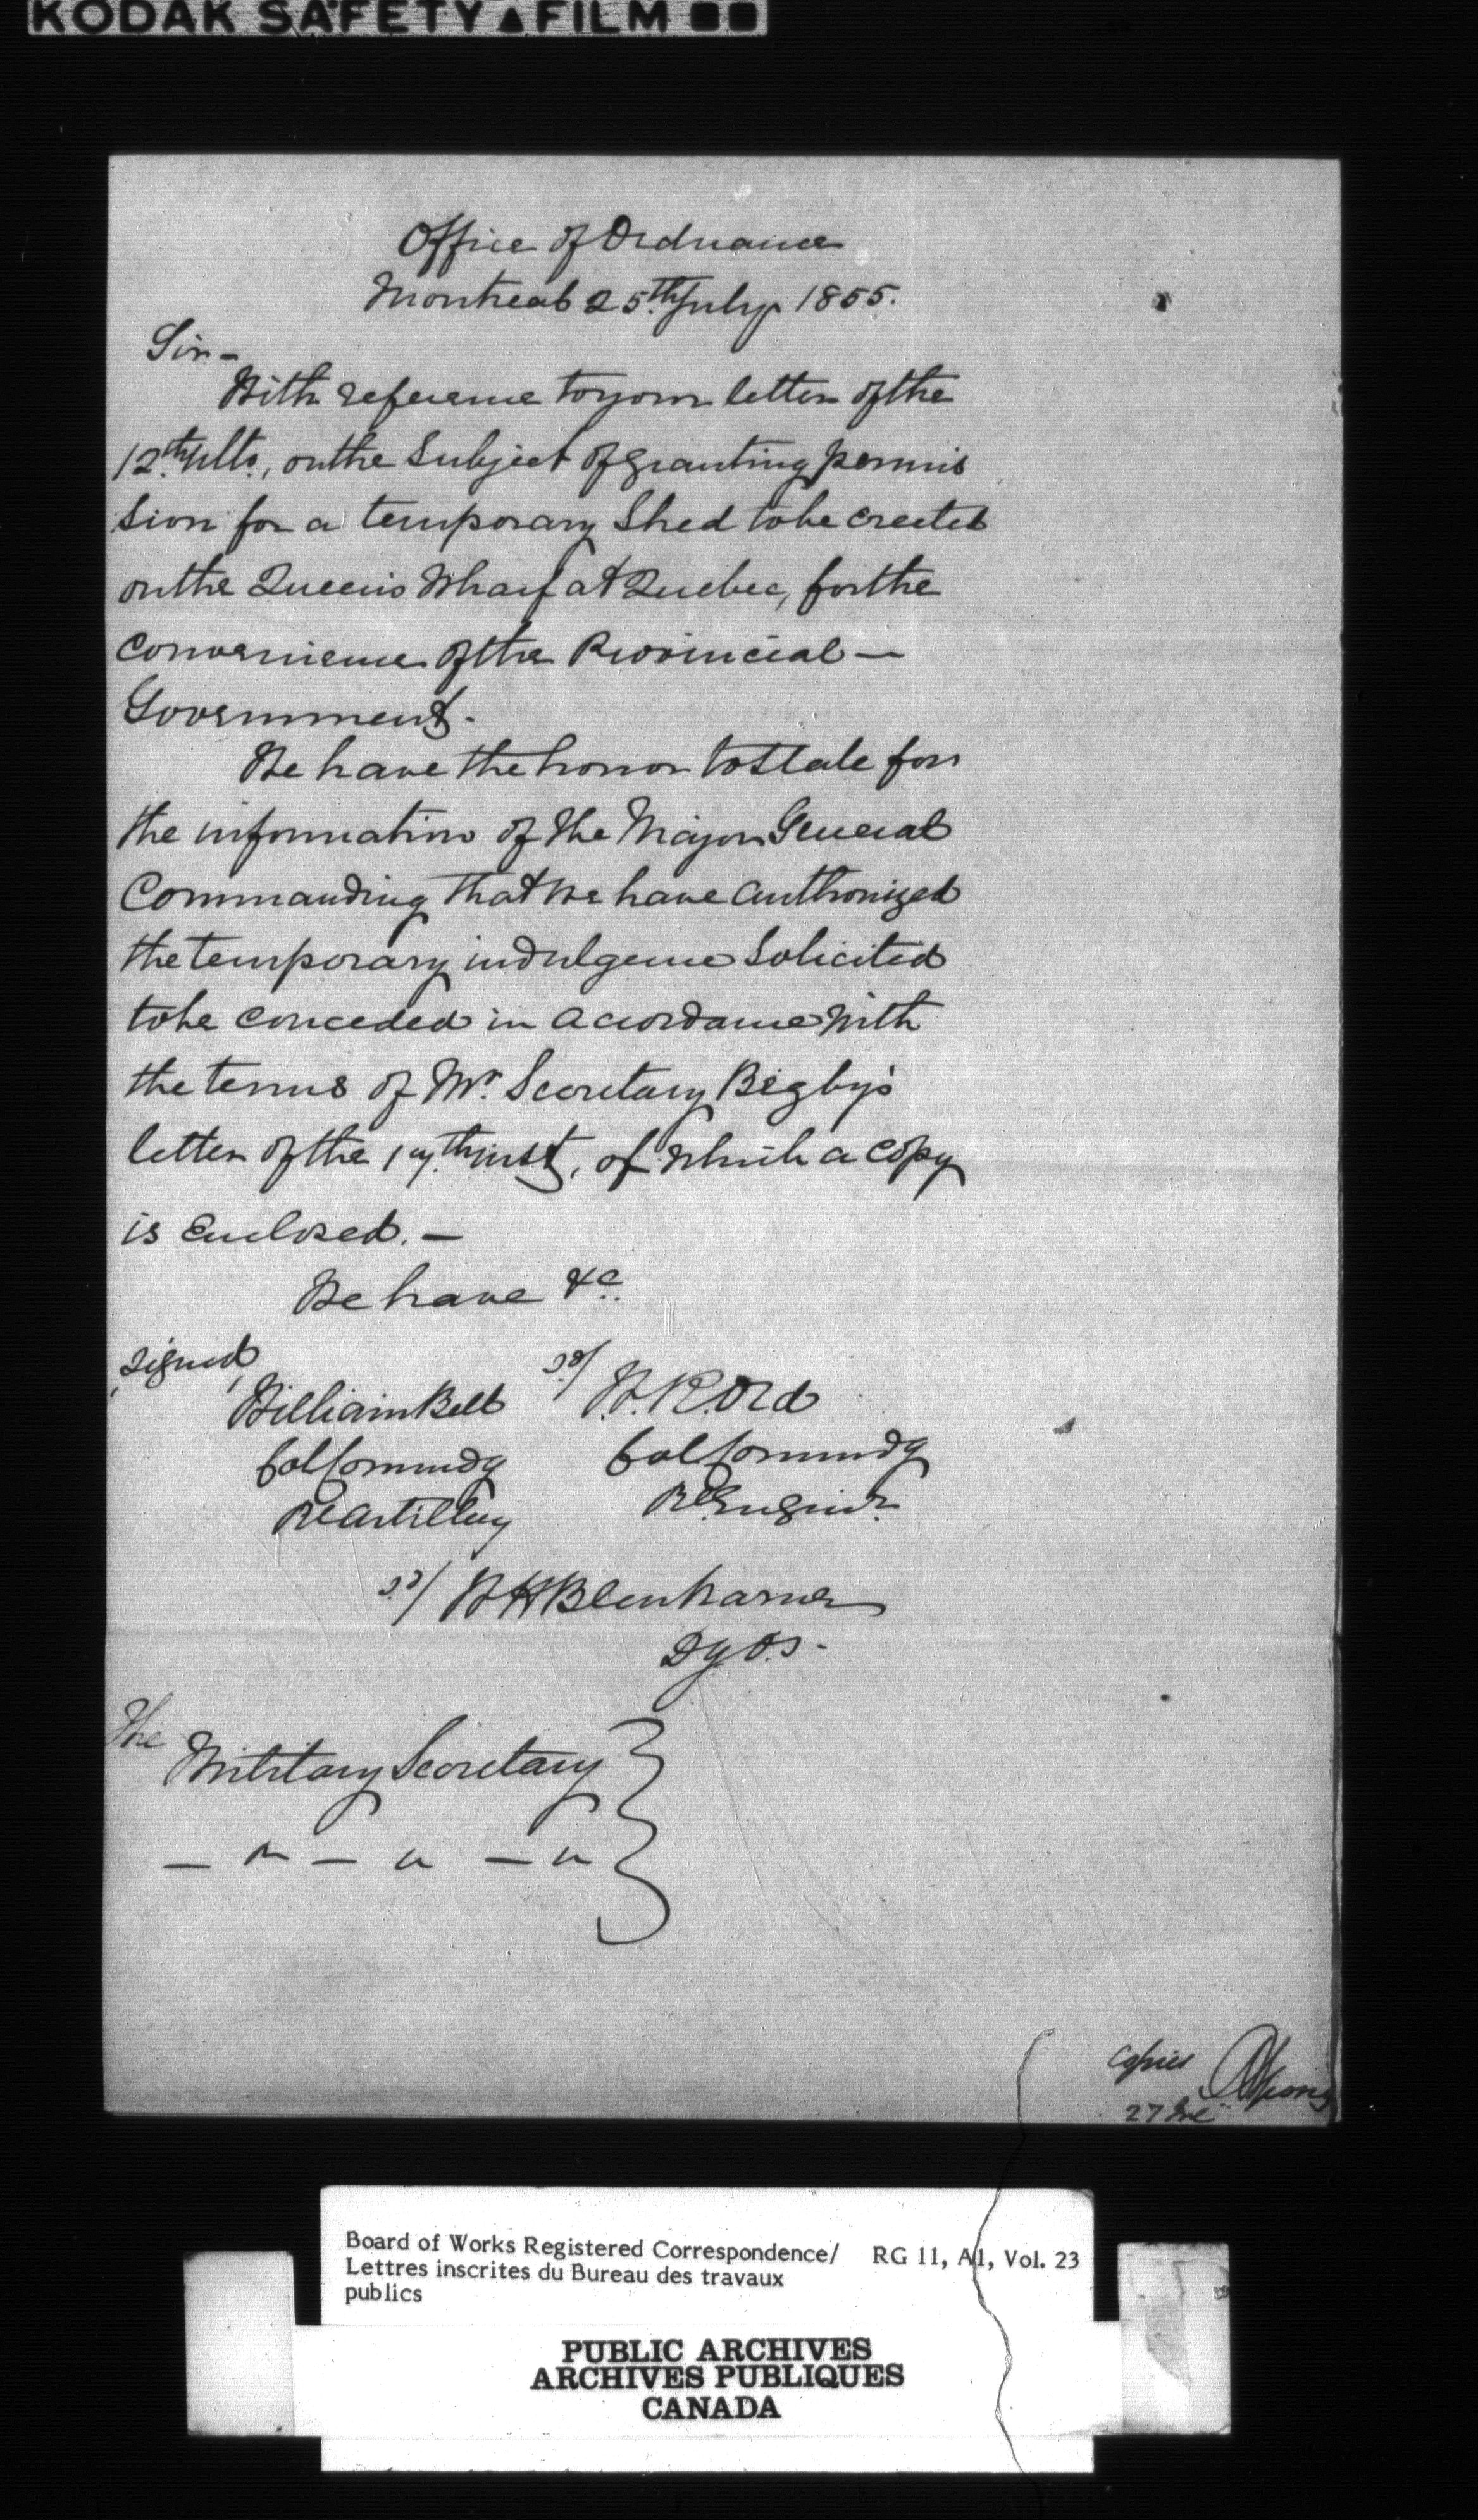 KODAK SAFETY ▲ FILM ■■
Office of Ordnance
Montreal 25th July 1855.
Sir-
With reference to your letter of the
12th ulto, on the Subject of granting permis
sion for a temporary Shed to be erected
on the Queen's Wharf at Quebec, for the
convenience of the Provincial —
Government.
We have the honor to State for
the information of the Major General
Commanding that we have authorized
the temporary indulgence Solicited
to be conceded in accordance with
the terms of Mr. Secretary Begby's
letter of the 17th inst, of which a copy
is Enclosed. —
We have &c.
signed
William Bell
Col Commndg
Rl Artillery
sd/ H.R. Ord
Col Commndg
Rl Enginrs
sd/ W H Blenkarne
Dy O.S.
The
Military Secretary
— " — " — "
Copies
27
Board of Works Registered Correspondence/ RG 11, A1, Vol. 23
Lettres inscrites du Bureau des travaux
publics
PUBLIC ARCHIVES
ARCHIVES PUBLIQUES
CANADA